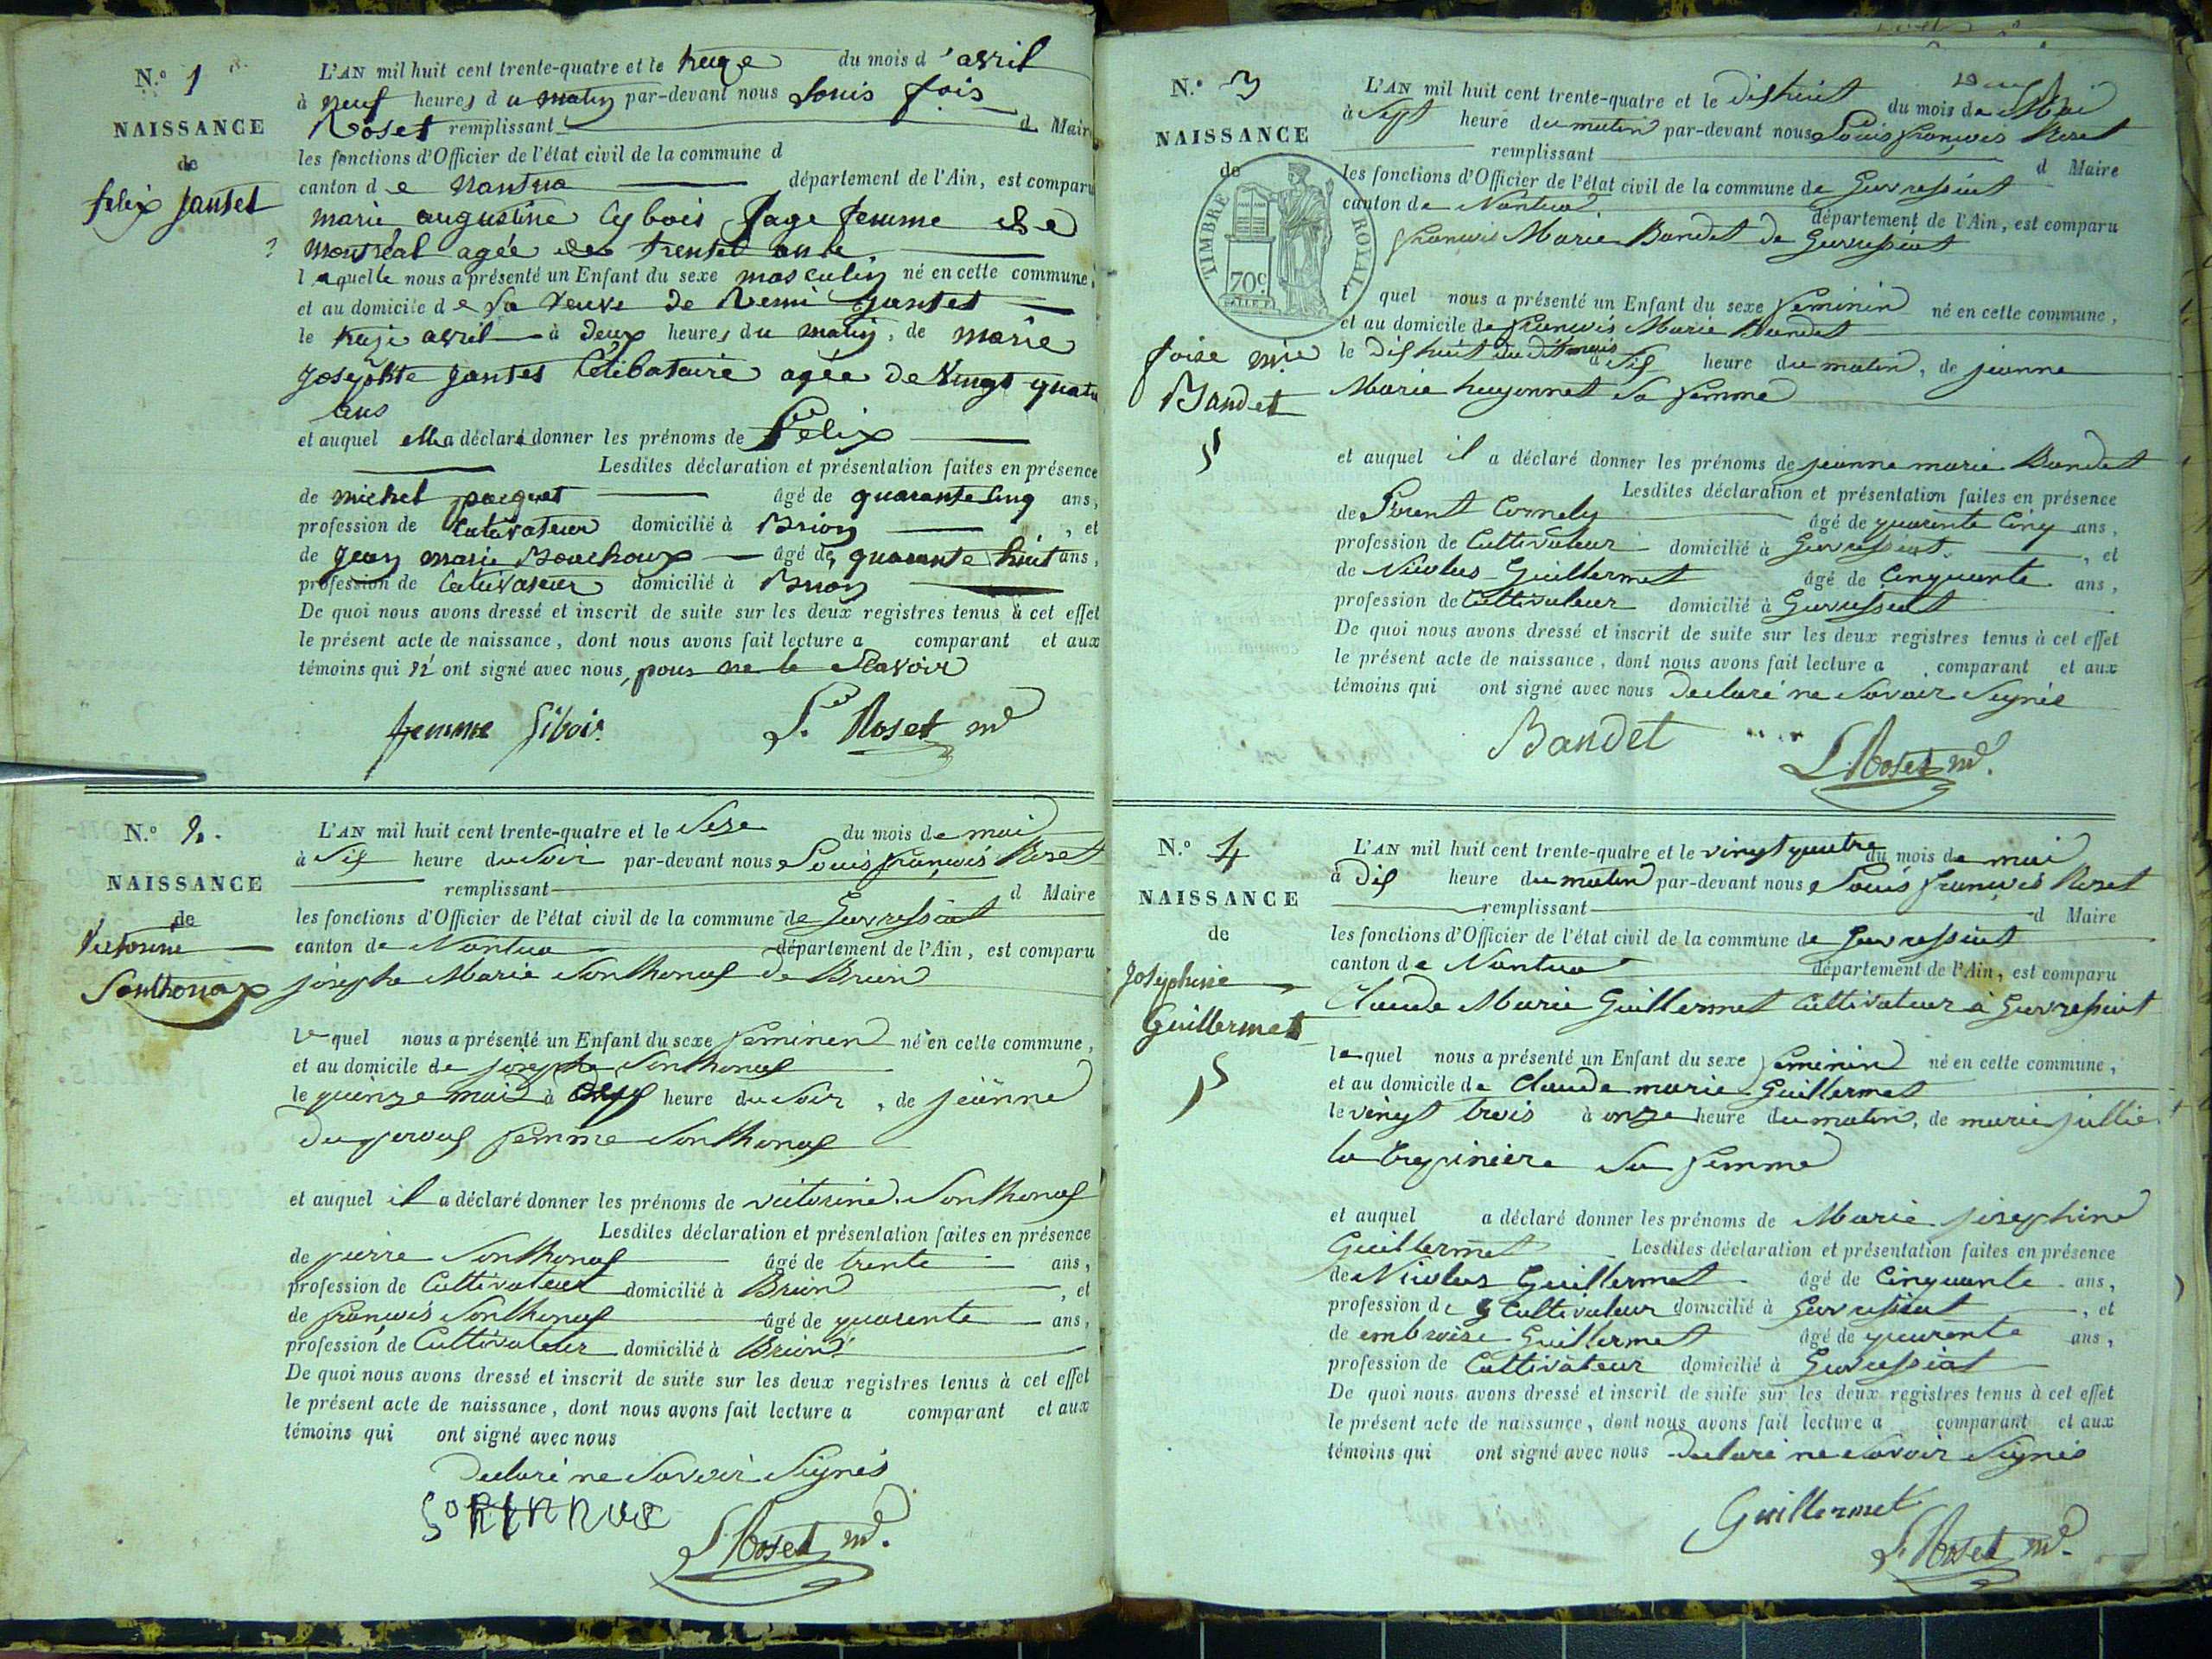 N.o 1
NAISSANCE
de
felix jantet
L'AN mil huit cent trente-quatre et le treize du mois d'avril
à neuf heures du matin par-devant nous Louis fois
Roset remplissant d Maire
les fonctions d'Officier de l'état civil de la commune d
canton de Nantua département de l'Ain, est comparu
marie augustine Cybois sage femme de
montréal agée de trente ans
laquelle nous a présenté un Enfant du sexe masculin né en cette commune,
et au domicile de la veuve de Remi jantet
le treize avril à deux heures du matin, de marie
josephte jantet Célibataire agée de vingt quatre
ans
et auquel elle a déclaré donner les prénoms de Felix
Lesdites déclaration et présentation faites en présence
de michel pacquet âgé de quarante cinq ans,
profession de Cultivateur domicilié à Brion, et
de jean marie Bouchoux âgé de quarante huit ans,
profession de Cultivateur domicilié à Brion
De quoi nous avons dressé et inscrit de suite sur les deux registres tenus à cet effet
le présent acte de naissance, dont nous avons fait lecture a comparant et aux
témoins qui n'ont signé avec nous, pour ne le scavoir
femme Sibois L. Roset m
N.o 2.
NAISSANCE
de
Victorine
Sonthonax
L'AN mil huit cent trente-quatre et le Seze du mois de mai
à Six heure du Soir par-devant nous Louis françois Roset
remplissant d Maire
les fonctions d'Officier de l'état civil de la commune de Gevressiat
canton de Nantua département de l'Ain, est comparu
josephe Marie Sonthonax de Brion
lequel nous a présenté un Enfant du sexe feminen né en cette commune,
et au domicile de josephe Sonthonax
le quinze mai à heure du Soir, de jeanne
femme Sonthonax
et auquel il a déclaré donner les prénoms de victorine Sonthonax
Lesdites déclaration et présentation faites en présence
de pierre Sonthonax âgé de trente ans,
profession de Cultivateur domicilié à Brion, et
de françois Sonthonax âgé de quarente ans,
profession de Cultivateur domicilié à Brion
De quoi nous avons dressé et inscrit de suite sur les deux registres tenus à cet effet
le présent acte de naissance, dont nous avons fait lecture a comparant et aux
témoins qui ont signé avec nous
Declaré ne Savoir Signés
L Roset m.
N.o 3
NAISSANCE
de
TIMBRE ROYAL
70c
foise mie
Bandet
L'AN mil huit cent trente-quatre et le dishuit du mois de Mai
à Sept heure du matin par-devant nous Louis françois Roset
remplissant d Maire
les fonctions d'Officier de l'état civil de la commune de Gevressiat
canton de Nantua département de l'Ain, est comparu
françois Marie Bandet de Gevressiat
l quel nous a présenté un Enfant du sexe feminin né en cette commune,
et au domicile de françois Marie Bandet
le dishuit du dit mois à Six heure du matin, de jeanne
Marie huyonnet Sa femme
et auquel il a déclaré donner les prénoms de jeanne marie Bandet
Lesdites déclaration et présentation faites en présence
de Cornely âgé de quarente Cinq ans,
profession de Cultivateur domicilié à Gevressiat, et
de Nicolas Guillermet âgé de Cinquante ans,
profession de Cultivateur domicilié à Gevressiat
De quoi nous avons dressé et inscrit de suite sur les deux registres tenus à cet effet
le présent acte de naissance, dont nous avons fait lecture a comparant et aux
témoins qui ont signé avec nous Declaré ne Savoir Signée
Bandet L. Roset m.
N.o 4
NAISSANCE
de
Josephine
Guillermet
L'AN mil huit cent trente-quatre et le vingt quatre du mois de mai
à Dix heure du matin par-devant nous Louis françois Roset
remplissant d Maire
les fonctions d'Officier de l'état civil de la commune de Gevressiat
canton de Nantua département de l'Ain, est comparu
Claude Marie Guillermet Cultivateur à Gevressiat
lequel nous a présenté un Enfant du sexe feminin né en cette commune,
et au domicile de Claude marie Guillermet
le vingt trois à onze heure du matin, de marie jullie
la Sa femme
et auquel a déclaré donner les prénoms de Marie josephine
Guillermet Lesdites déclaration et présentation faites en présence
de Nicolas Guillermet âgé de Cinquante ans,
profession de Cultivateur domicilié à Gevressiat, et
de embroise Guillermet âgé de quarente ans,
profession de Cultivateur domicilié à Gevressiat
De quoi nous avons dressé et inscrit de suite sur les deux registres tenus à cet effet
le présent acte de naissance, dont nous avons fait lecture a comparant et aux
témoins qui ont signé avec nous Declaré ne savoir Signés
Guillermet
L. Roset m.